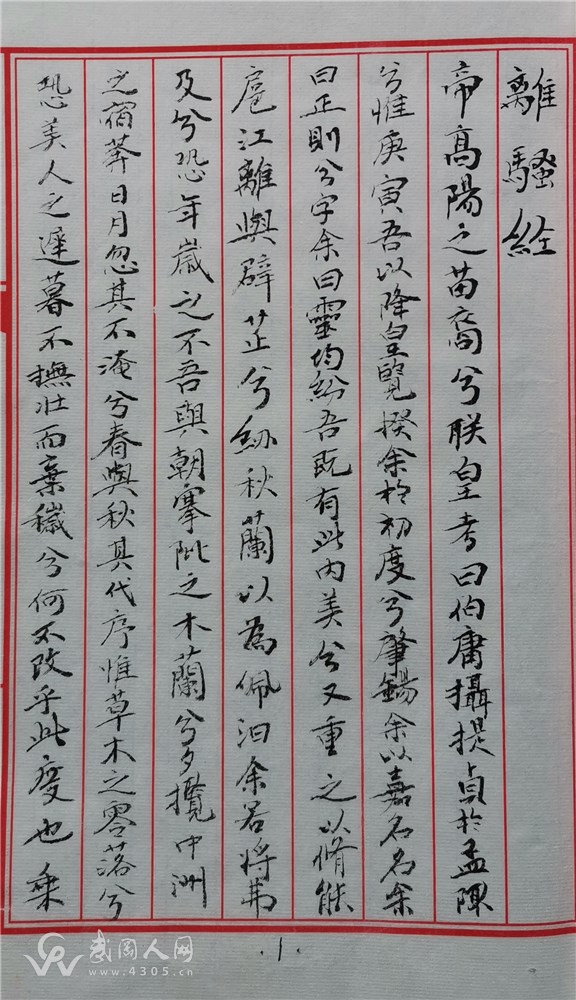 離騷經
帝高陽之苗裔兮朕皇考曰伯庸攝提貞於孟陬
兮惟庚寅吾以降皇覽揆余於初度兮肇錫余以嘉名名余
曰正則兮字余曰靈均紛吾既有此內美兮又重之以脩能
扈江離與辟芷兮紉秋蘭以為佩汩余若將弗
及兮恐年歲之不吾與朝搴阰之木蘭兮夕攬中洲
之宿莽日月忽其不淹兮春與秋其代序惟草木之零落兮
恐美人之遲暮不撫壯而棄穢兮何不改乎此度也乘
1
武岡人网
www.4305.cn